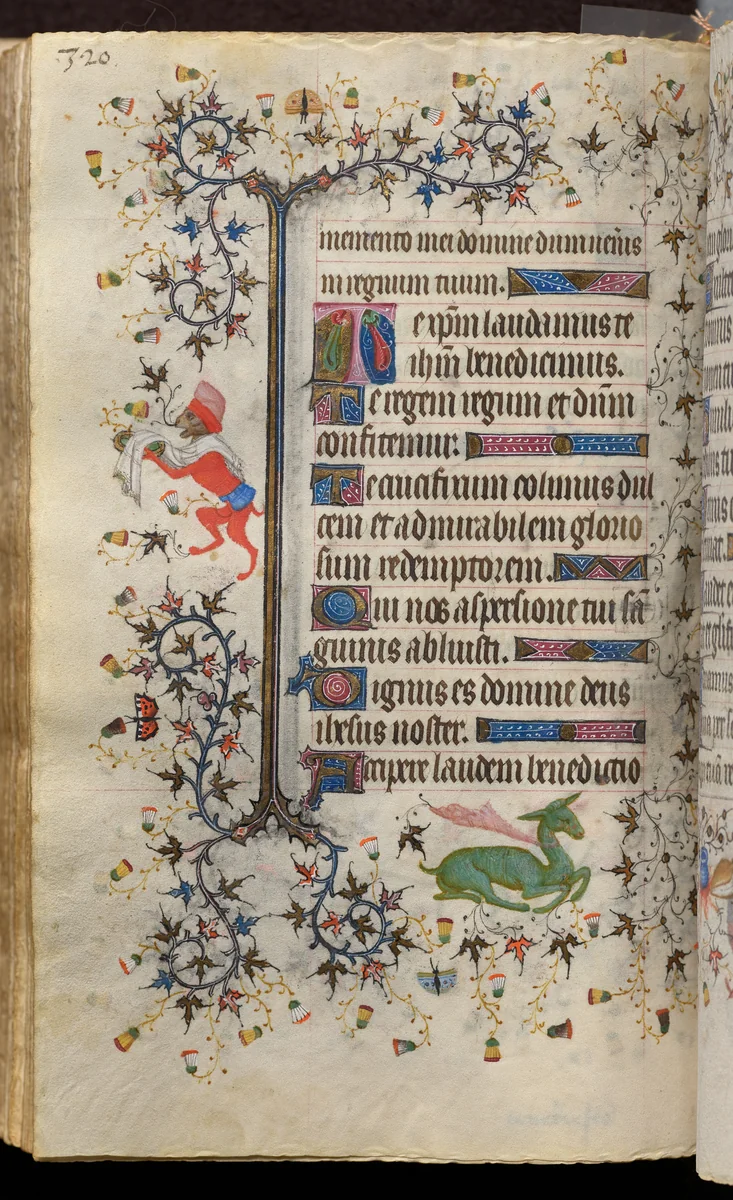 320
memento mei domine dum ueñis
in regnum tuum.
Te xp̃m laudamus te
ihm̃ benedicimus.
Te regem regum et dñm
confitemur.
Te crucifixum colimus dul
cem et admirabilem glorio
sum redemptorem.
Qui nos aspersione tui sã
guinis abluisti.
Dignus es domine deus
ihesus noster.
Accipere laudem benedictio